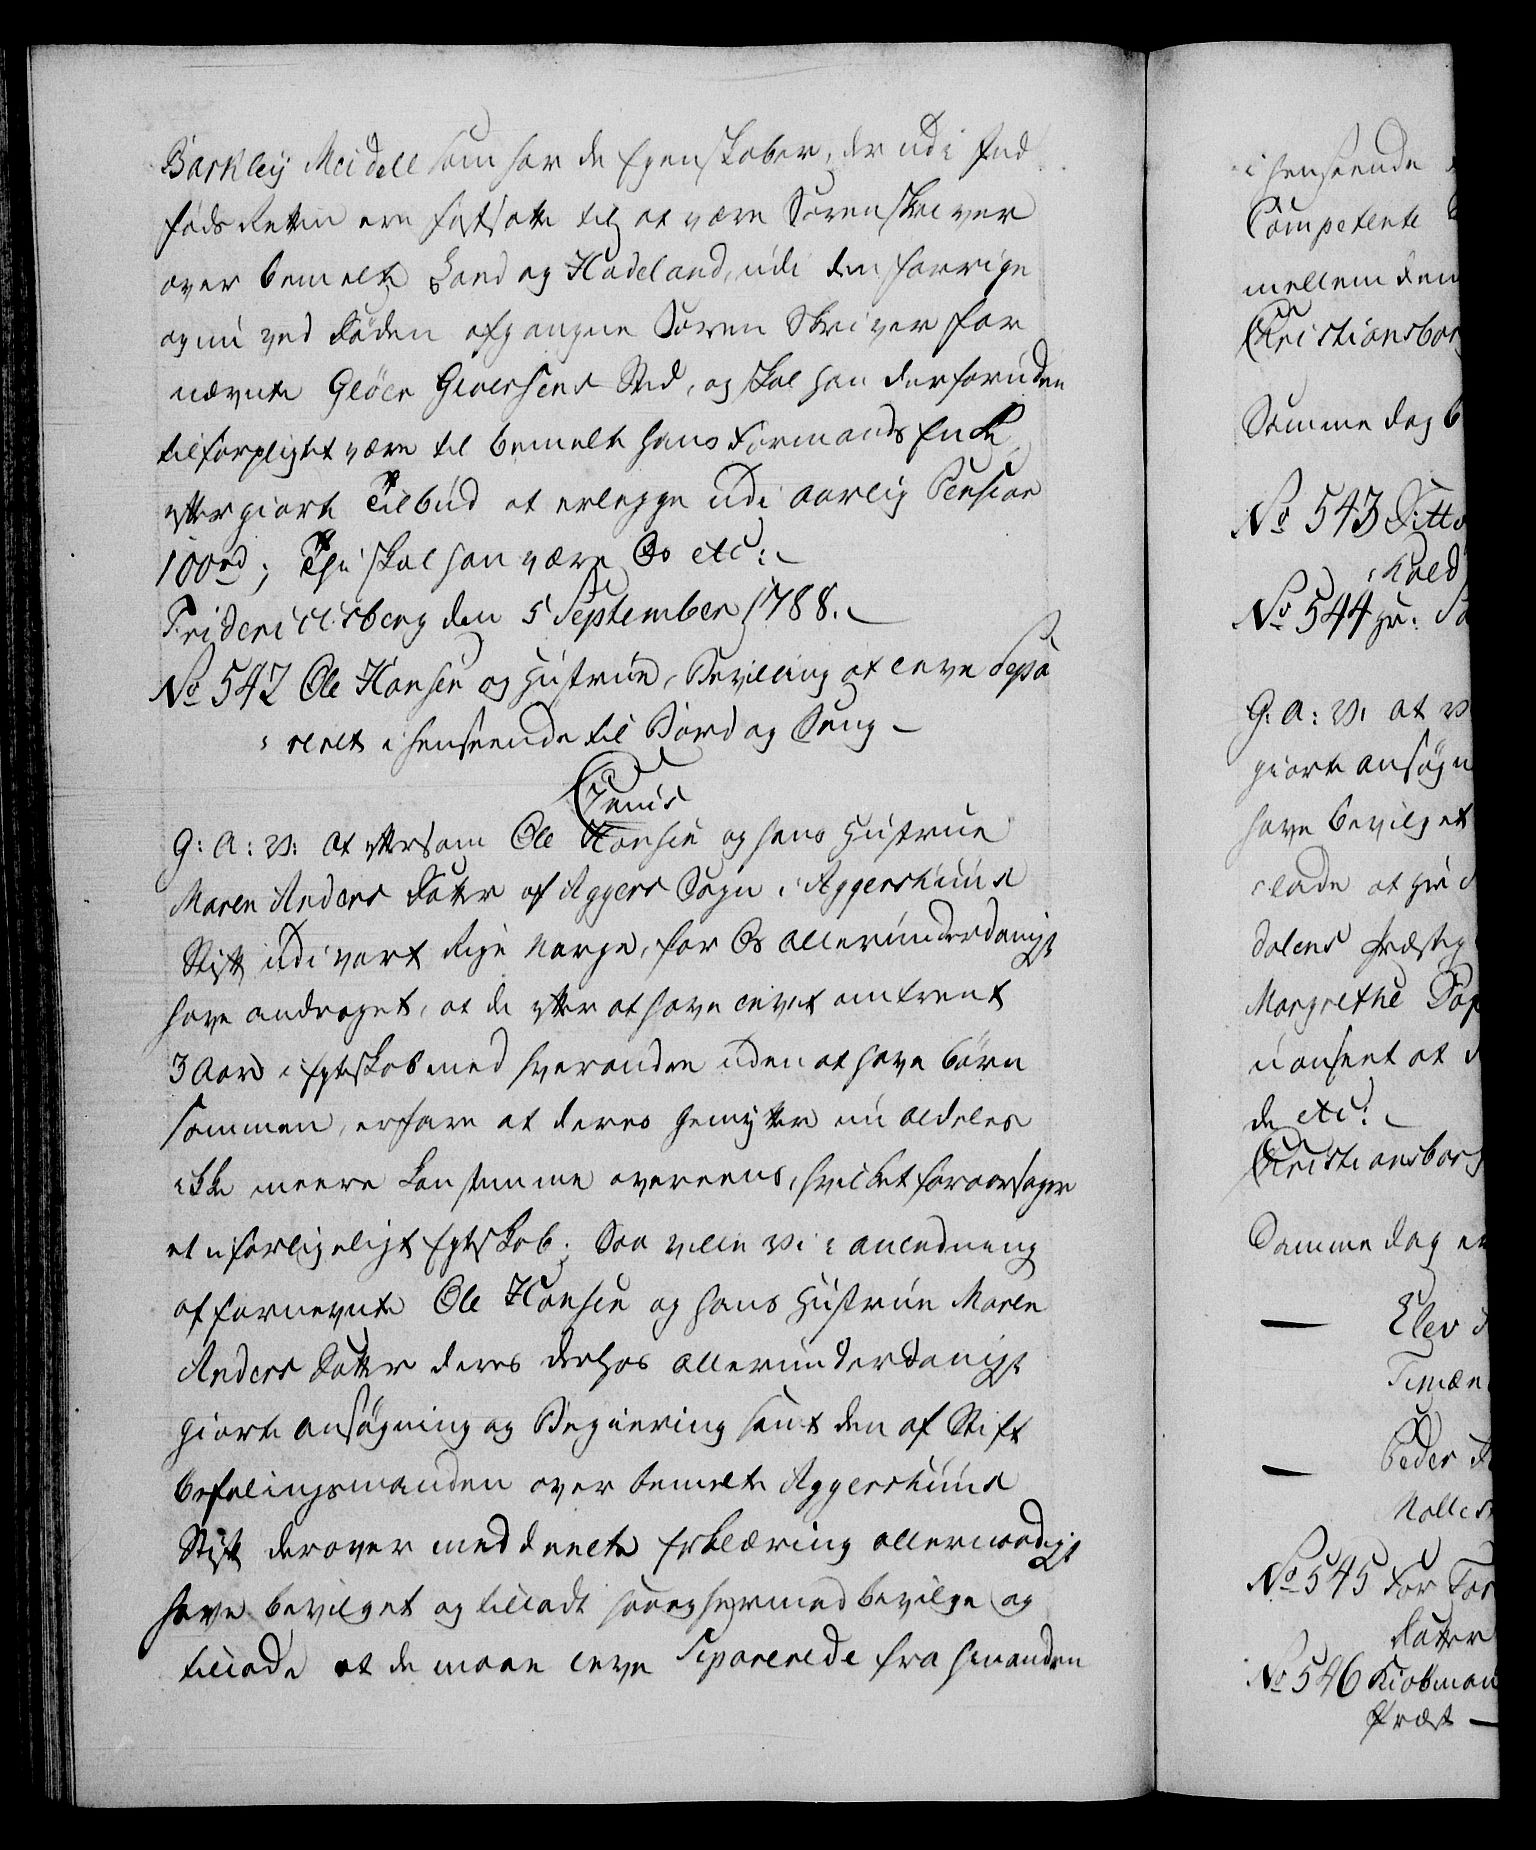 Barkley Meidell som har de Egenskaber, der udi Ind
føds Retten ere fastsatte til at være Sorenskriver
over bemelte Land og Hadeland, udi den forrige
og nu ved Døden afgangne Soren Skriver for
nævnte Gløer Giversens Sted, og skal han desforuden
tilforpligtet være til bemelte hans Formands Enke
efter giorte Tilbud at erlegge udi aarlig Pension
100rd; Thi skal han være Os etc:
Friderichsberg den 5 September 1788.
No 542 Ole Hansen og Hustrue, Bevilling at leve Sepa
reret i henseende til Bord og Seng
Genus
G: A: V: at eftersom Ole Hansen og hans Hustrue
Maren Anders Datter af Aggers Sogn i Aggershuus
Stift udi vort Rige Norge, for Os allerunderdanigst
have andraget, at de efter at have levet omtrent
3 Aar i Egteskab med hverandre uden at have børn
sammen, erfare at deres Gemytter nu aldeles
ikke meere kan stemme overeens, hvilket foraarsager
et uforligeligt Egteskab; Saa ville Vi i anledning
af fornevnte Ole Hansen og hans Hustrue Maren
Anders Datter deres derhos allerunderdanigst
giorte ansøgning og Begiering samt den af Stift
befalingsmanden over bemelte Aggershuus
Stift derover meddeelte Erklæring allernaadigst
have bevilget og tilladt saa og hermed bevilge og
tillade at de maae leve Separerede fra hinanden
i henseende
Competente
mellem dem
Christiansborg
Samme dag
No 543 Ditto
No 544 Hr:
G: A: V: at
giorte ansøgn
have bevilget
lade at Hr
dalens Præsteg
Margrethe
uanseet at
de etc:
Christiansborg
Samme dag
Elev
Peder
No 545 For
Datter
No 546 Kiøbman
Præst